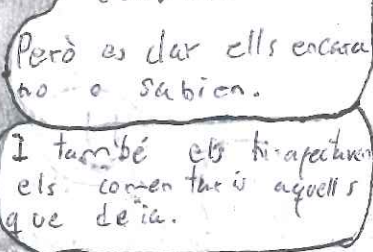 Però es clar ells encara
no o sabien.
I també els hi afectaven
els comentaris aquells
que deia.